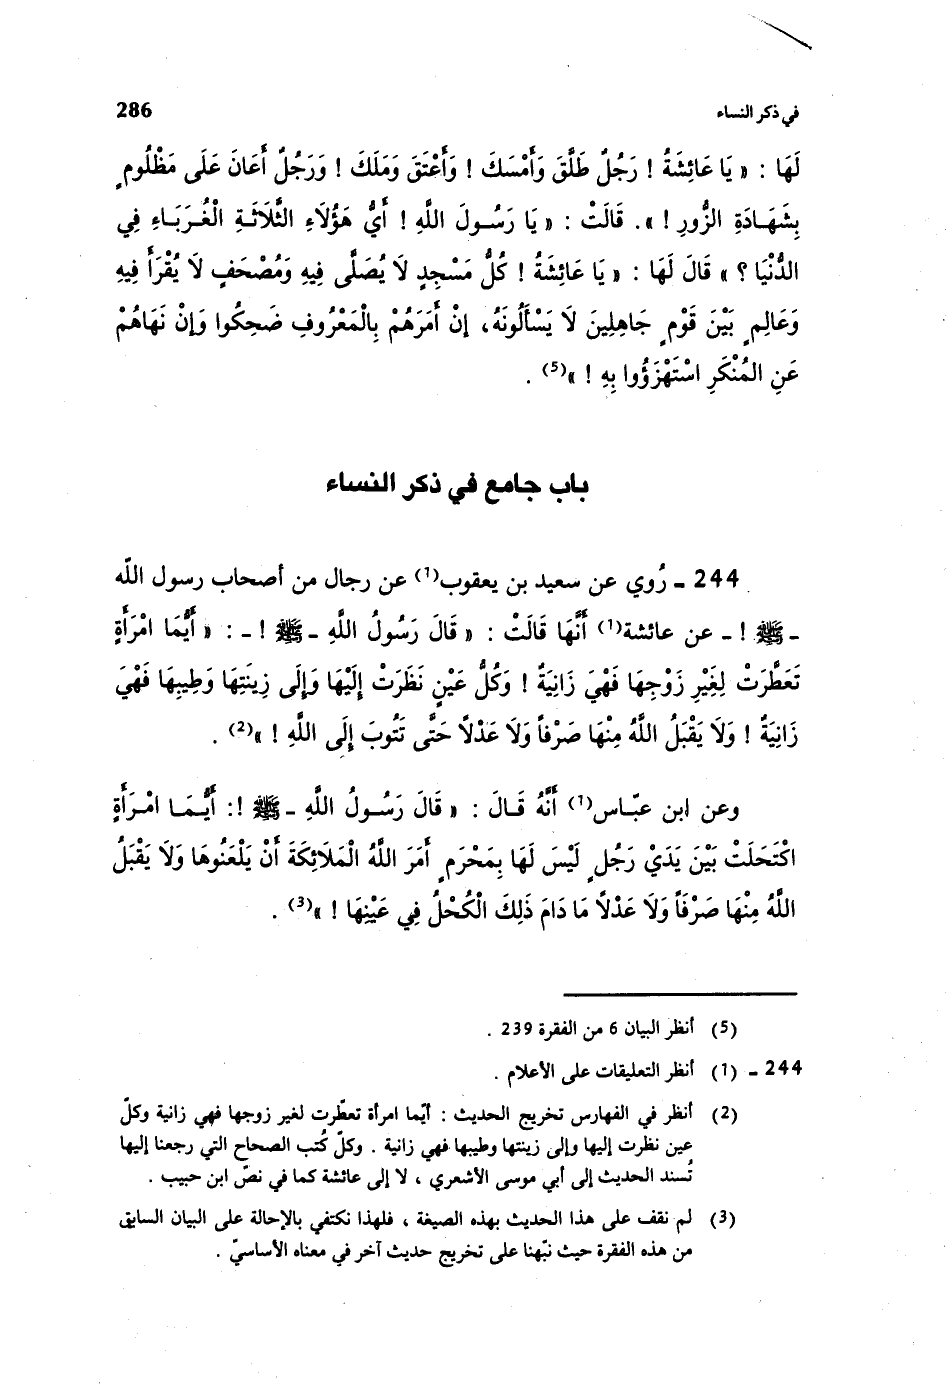 في ذكر النساء 286
لَهَا : « يَا عَائِشَةُ ! رَجُلٌ طَلَّقَ وَأَمْسَكَ ! وَأَعْتَقَ وَمَلَكَ ! وَرَجُلٌ أَعَانَ عَلَى مَظْلُومٍ
بِشَهَادَةِ الزُّورِ ! ». قَالَتْ : « يَا رَسُولَ اللَّهِ ! أَيُّ هَؤُلَاءِ الثَّلَاثَةِ الْغُرَبَاءِ فِي
الدُّنْيَا ؟ » قَالَ لَهَا : « يَا عَائِشَةُ ! كُلُّ مَسْجِدٍ لَا يُصَلَّى فِيهِ وَمُصْحَفٍ لَا يُقْرَأُ فِيهِ
وَعَالِمٍ بَيْنَ قَوْمٍ جَاهِلِينَ لَا يَسْأَلُونَهُ، إِنْ أَمَرَهُمْ بِالْمَعْرُوفِ ضَحِكُوا وَإِنْ نَهَاهُمْ
عَنِ المُنْكَرِ اسْتَهْزَؤُوا بِهِ ! »(5) .
باب جامع في ذكر النساء
244 ـ رُوي عن سعيد بن يعقوب(1) عن رجال من أصحاب رسول اللّه
ـ ﷺ ! ـ عن عائشة(1) أَنَّهَا قَالَتْ : « قَالَ رَسُولُ اللَّهِ ـ ﷺ ! ـ : « أَيُّمَا امْرَأَةٍ
تَعَطَّرَتْ لِغَيْرِ زَوْجِهَا فَهْيَ زَانِيَةٌ ! وَكُلُّ عَيْنٍ نَظَرَتْ إِلَيْهَا وَإِلَى زِينَتِهَا وَطِيبِهَا فَهْيَ
زَانِيَةٌ ! وَلَا يَقْبَلُ اللَّهُ مِنْهَا صَرْفاً وَلَا عَدْلاً حَتَّى تَتُوبَ إِلَى اللَّهِ ! »(2) .
وعن ابن عبّاس(1) أَنَّهُ قَالَ : « قَالَ رَسُولُ اللَّهِ ـ ﷺ !: أَيُّمَا امْرَأَةٍ
اكْتَحَلَتْ بَيْنَ يَدَيْ رَجُلٍ لَيْسَ لَهَا بِمَحْرَمٍ أَمَرَ اللَّهُ الْمَلَائِكَةَ أَنْ يَلْعَنُوهَا وَلَا يَقْبَلُ
اللَّهُ مِنْهَا صَرْفاً وَلَا عَدْلاً مَا دَامَ ذَلِكَ الْكُحْلُ فِي عَيْنِهَا ! »(3) .
(5) أنظر البيان 6 من الفقرة 239 .
244 ـ (1) أنظر التعليقات على الأعلام .
(2) أنظر في الفهارس تخريج الحديث : أيّما امرأة تعطّرت لغير زوجها فهي زانية وكلّ
عين نظرت إليها وإلى زينتها وطيبها فهي زانية . وكلّ كُتب الصحاح التي رجعنا إليها
تُسند الحديث إلى أبي موسى الأشعري ، لا إلى عائشة كما في نصّ ابن حبيب .
(3) لم نقف على هذا الحديث بهذه الصيغة ، فلهذا نكتفي بالإحالة على البيان السابق
من هذه الفقرة حيث نبّهنا على تخريج حديث آخر في معناه الأساسيّ .